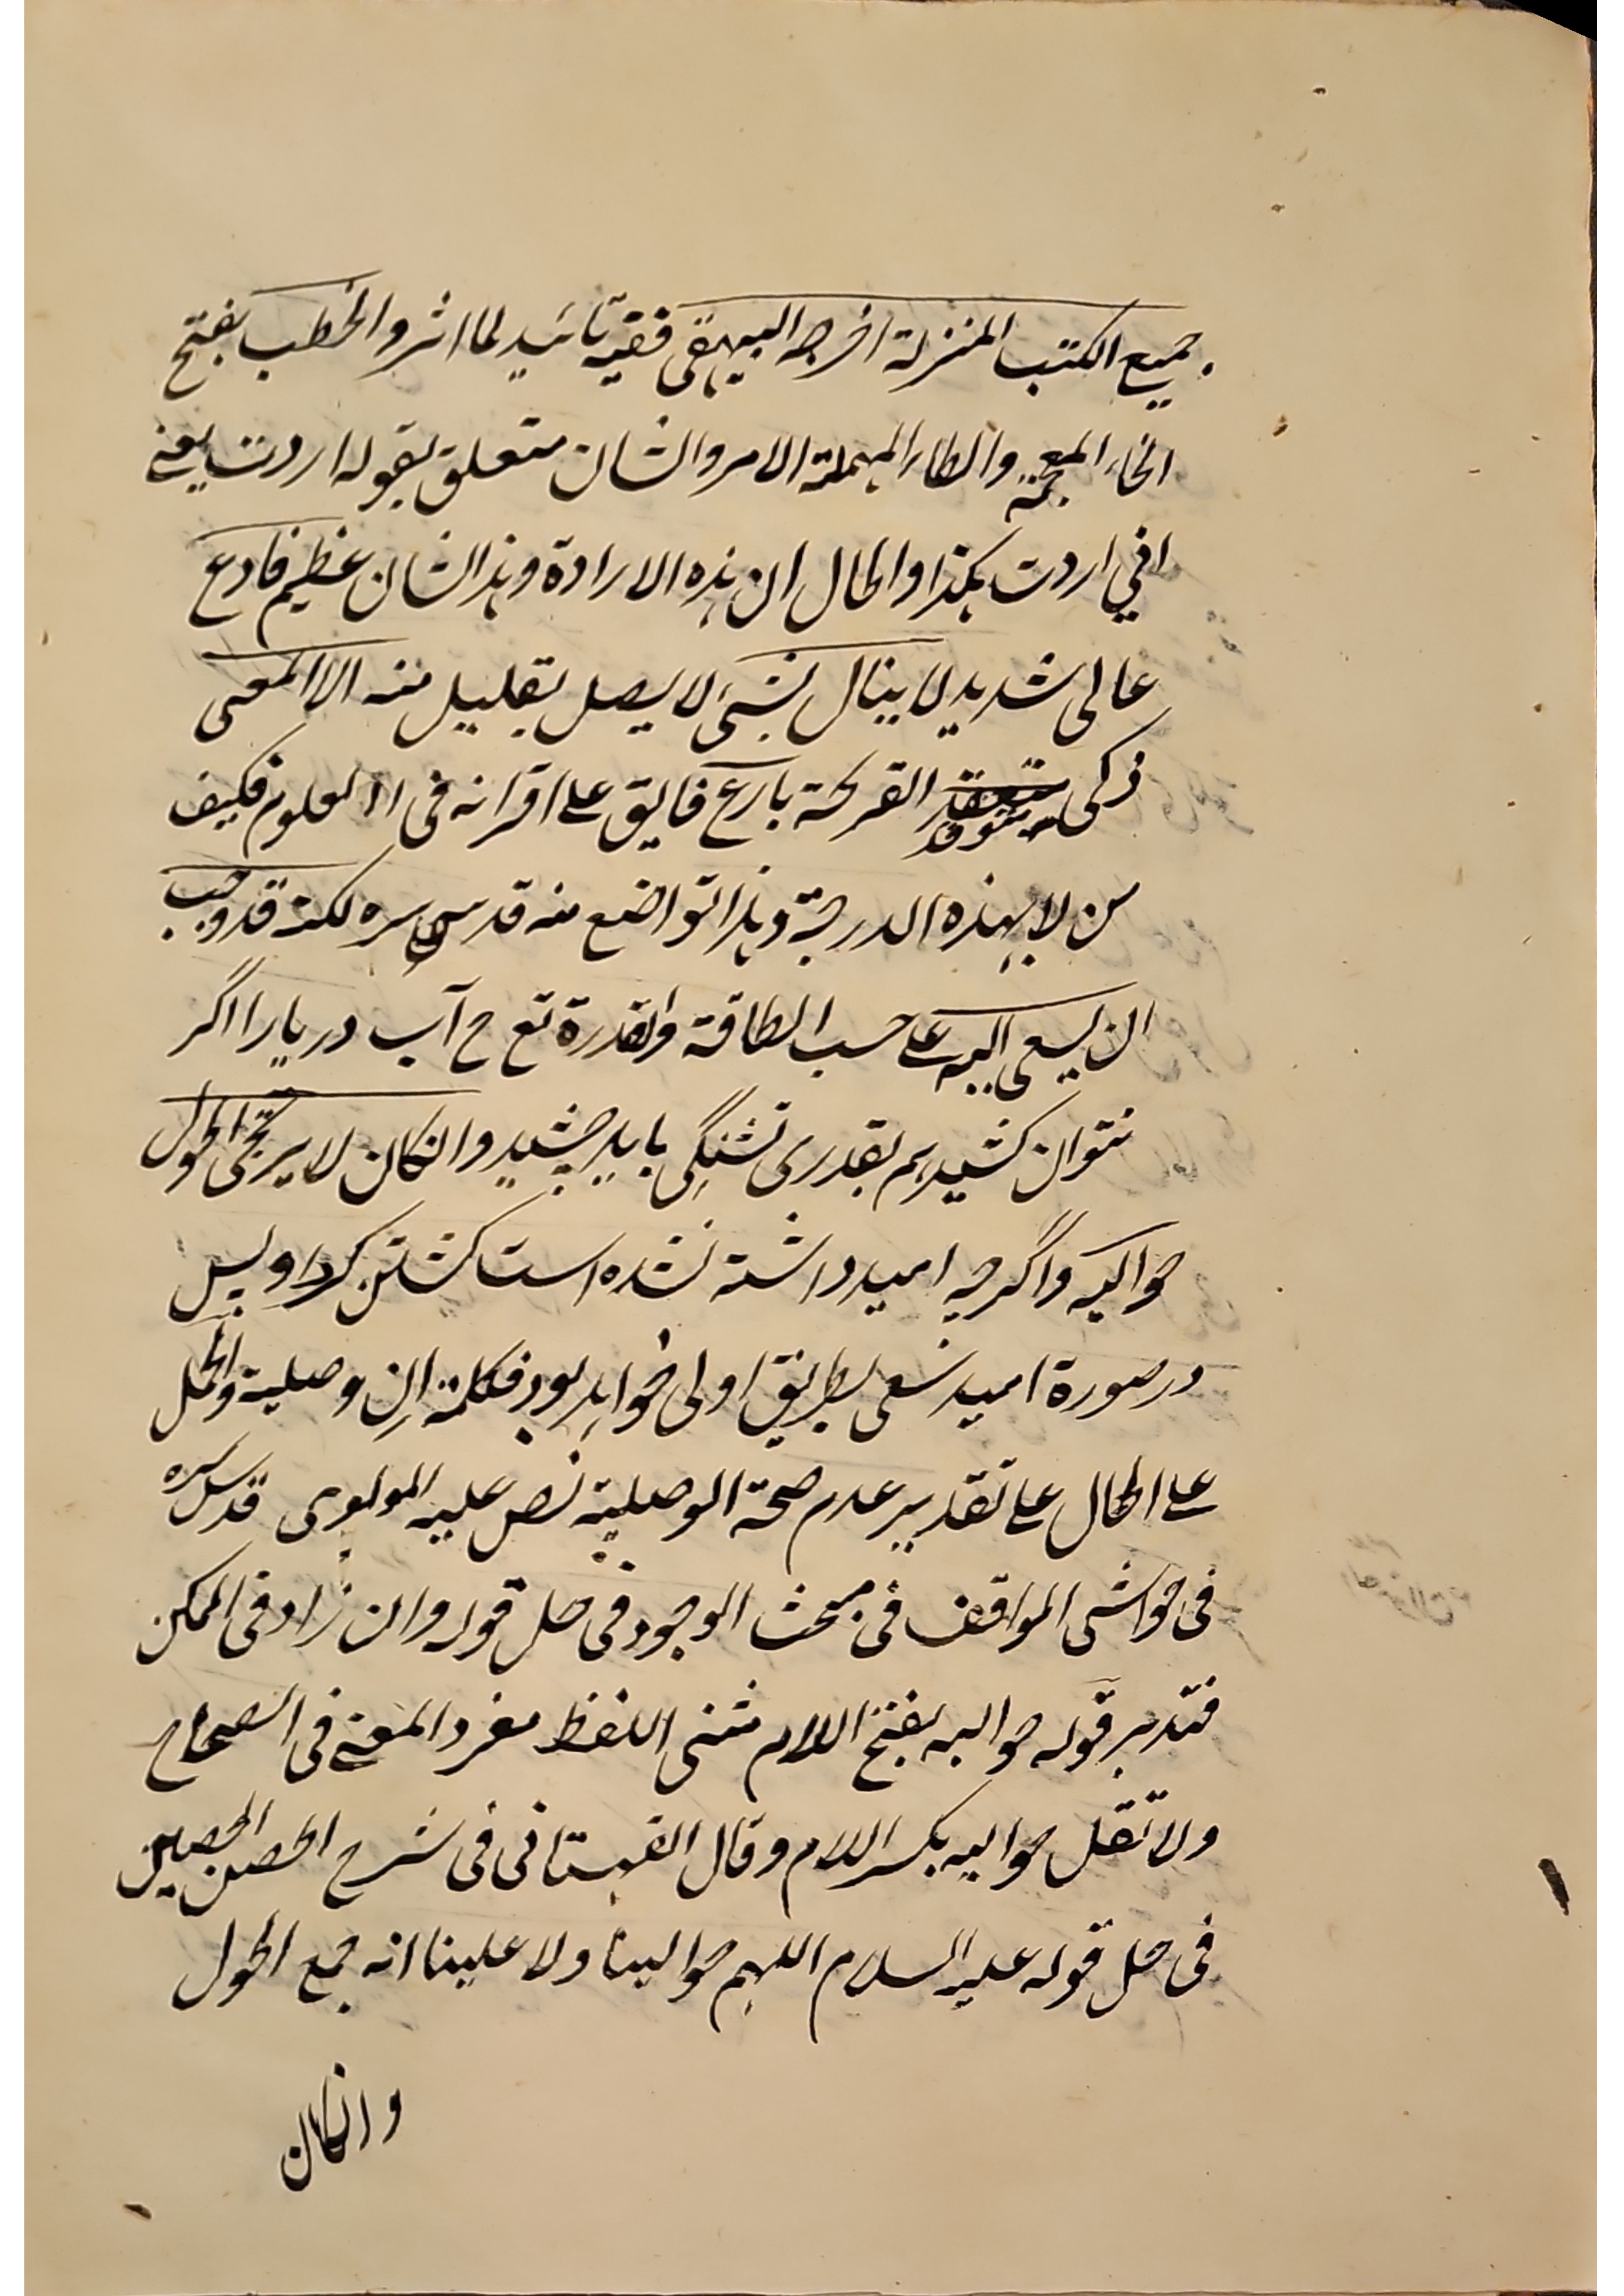 جميع الكتب المنزلة اخرجه البيهقى ففيه تائيد لما اثر والخطب بفتح
الخاء المعجمة والطاء المهملة الامر والشان متعلق بقوله اردت يعنى
انى اردت هكذا والحال ان هذه الارادة وهذا الشان عظيم فادع
عالى شديد لا ينال بشىء لا يصل بقليل منه الا المعى
ذكى متوقد القريحة بارع فايق على اقرانه فى العلوم فكيف
من لا بهذه الدرجة وهذا تواضع منه قدس سره لكنه قد وجب
ان يسعى اليه على حسب الطاقة والقدرة تع ح آب دريا را اگر
نتوان كشيد هم بقدرى تشنگى بايد چشيد وانكان لا يرتجى الحول
حواليه واگرچه اميد داشته نشده است گشتن گرد او پس
در صورة اميد سعى بطريق اولى خواهد بود فكلمة ان وصلية والحمل
على الحال على تقدير عدم صحة الوصلية نص عليه المولوى قدس سره
فى حواشى المواقف فى مبحث الوجود فى حل قوله وان زاد فى الممكن
فتدبر قوله حواليه بفتح اللام مثنى اللفظ مفرد المعنى فى الصحاح
ولا تقل حواليه بكسر اللام وقال القهستانى فى شرح الحصن الحصين
فى حل قوله عليه السلام اللهم حوالينا ولا علينا انه جمع الحول
وانكان